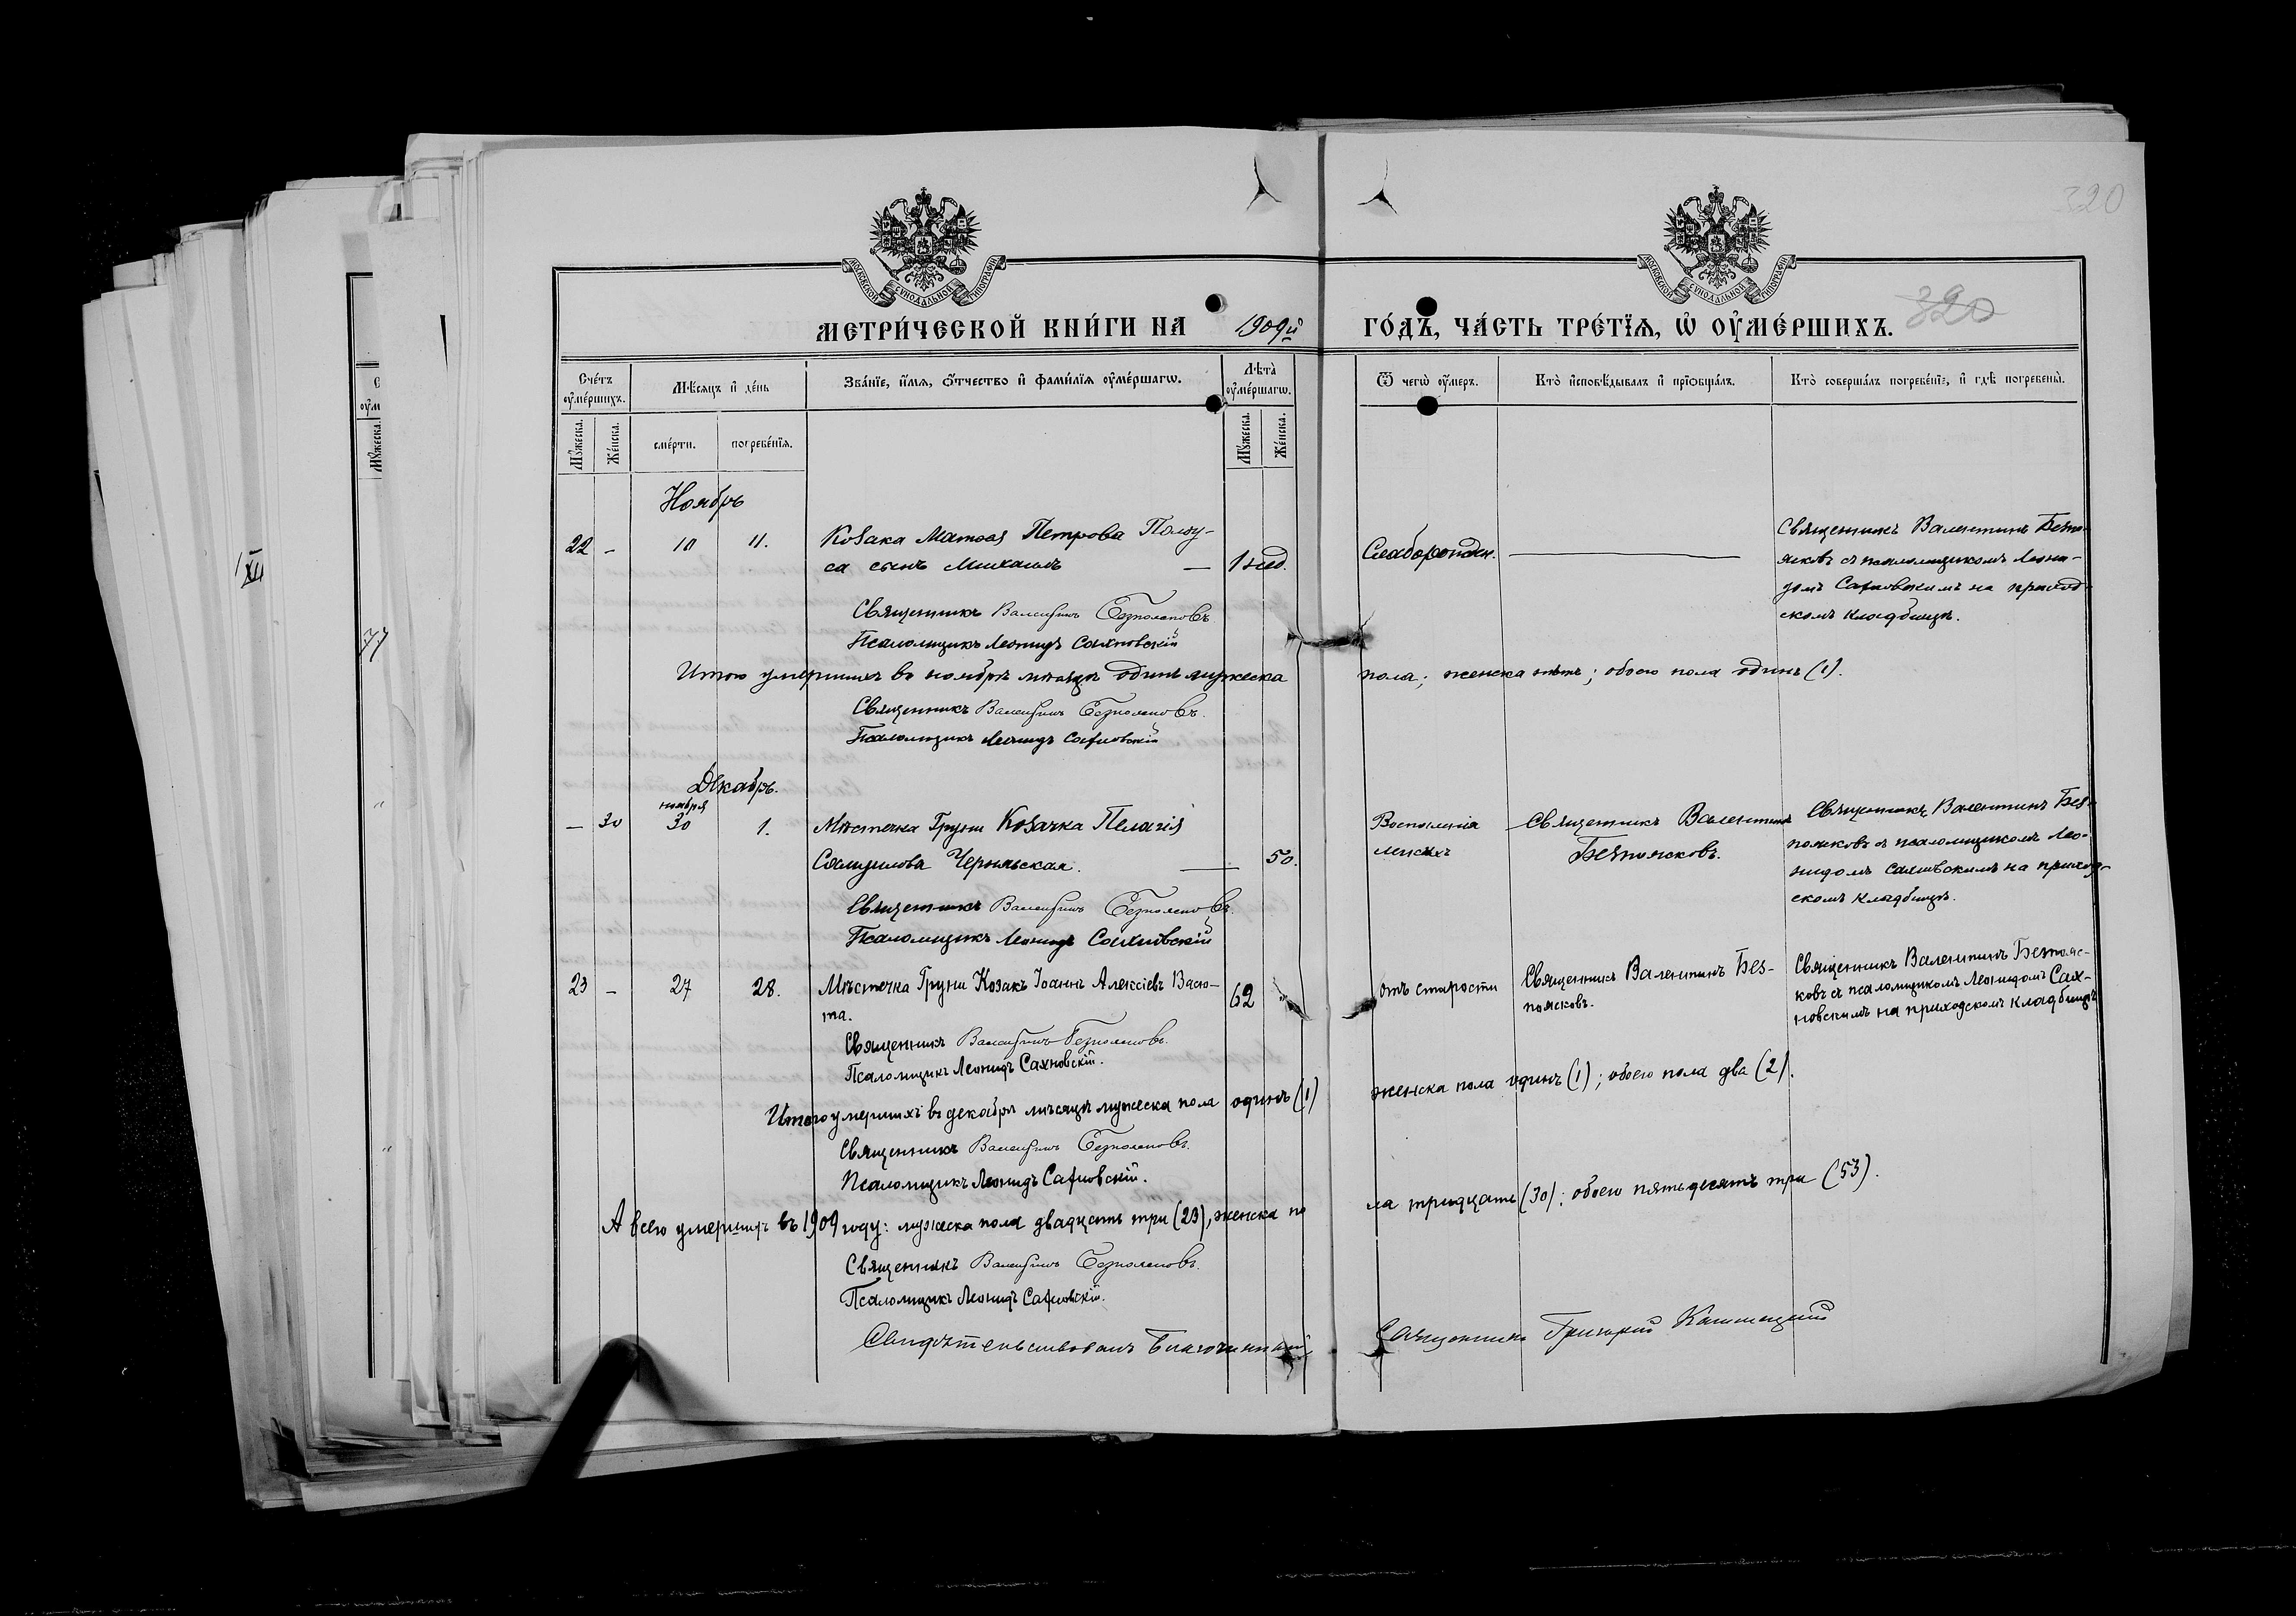 320
МОСКОВСКОЙ СѴНОДАЛЬНОЙ ТИПОГРАФІИ
МОСКОВСКОЙ СѴНОДАЛЬНОЙ ТИПОГРАФІИ
МЕТРИ́ЧЕСКОЙ КНИ́ГИ НА 1909й ГО́ДЪ, ЧА́СТЬ ТРЕ́ТЇѦ, Ѡ҆ ОУ҆МЕ́РШИХЪ. 320
Сче́тъ оу҆ме́ршихъ.
Мѣ́сѧцъ и҆ де́нь
Зва́нїе, и҆́мѧ, ѻ҆́тчество и҆ фами́лїѧ оу҆ме́ршагѡ.
Лѣ̀та оу҆ме́ршагѡ.
Ѿ чегѡ̀ оу҆́меръ.
Кто̀ и҆сповѣ́дывалъ и҆ прїѡбща́лъ.
Кто̀ соверша́лъ погребе́нїе, и҆ гдѣ̀ погребены̀.
Мꙋ́жеска.
Же́нска.
сме́рти.
погребе́нїѧ.
Мꙋ́жеска.
Же́нска.
Ноябрь
22 - 10 11. Козака Матвѣя Петрова Полу-
са сынъ Михаилъ — 1 нед.
Слаборожден.
Священникъ Валентинъ Безпо-
ясковъ съ псаломщикомъ Леони-
домъ Сахновскимъ на приход-
скомъ кладбищѣ.
Священникъ Валентинъ Безпоясковъ
Псаломщикъ Леонидъ Сахновскій
Итого умершихъ въ ноябрѣ мѣсяцѣ одинъ мужеска пола; женска нѣтъ; обоего пола одинъ (1).
Священникъ Валентинъ Безпоясковъ.
Псаломщикъ Леонидъ Сахновскій
Декабрь.
ноября
— 30 30 1. Мѣстечка Груни Козачка Пелагія
Самуилова Чернявская. — 50.
Воспаленія
легкихъ
Священникъ Валентинъ
Безпоясковъ.
Священникъ Валентинъ Без-
поясковъ съ псаломщикомъ Лео-
нидомъ Сахновскимъ на приход-
скомъ кладбищѣ.
Священникъ Валентинъ Безпоясковъ.
Псаломщикъ Леонидъ Сахновскій
23 - 27 28. Мѣстечка Груни Козакъ Іоаннъ Алексіевъ Васю-
та. 62
отъ старости
Священникъ Валентинъ Без-
поясковъ.
Священникъ Валентинъ Безпояс-
ковъ съ псаломщикомъ Леонидомъ Сах-
новскимъ на приходскомъ кладбищѣ
Священникъ Валентинъ Безпоясковъ.
Псаломщикъ Леонидъ Сахновскій.
Итого умершихъ въ декабрѣ мѣсяцѣ мужеска пола одинъ (1) женска пола одинъ (1); обоего пола два (2).
Священникъ Валентинъ Безпоясковъ.
Псаломщикъ Леонидъ Сахновскій.
А всего умершихъ въ 1909 году: мужеска пола двадцать три (23), женска по ла тридцать (30); обоего пятьдесятъ три (53).
Священникъ Валентинъ Безпоясковъ.
Псаломщикъ Леонидъ Сахновскій.
Свидѣтельствовалъ Благочинный Священникъ Григорій
77